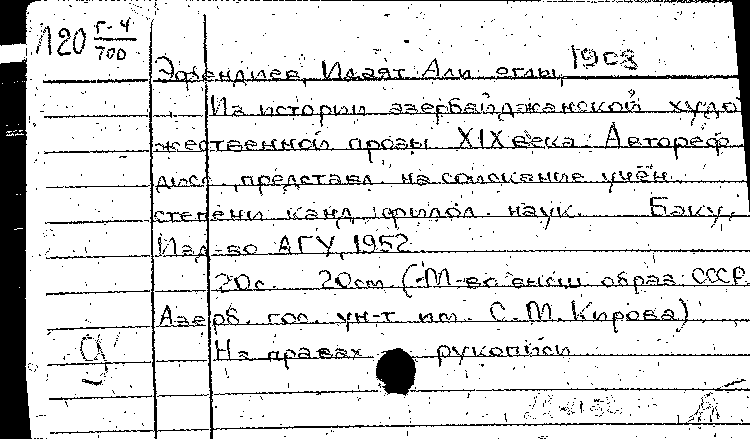 Л20 Г-4
700
Эфендиев, Идаят Али оглы, 1903
Из истории азербайджанской худо
жественной прозы XIX века. Автореф
дисс., представл. на соискание учён.
степени канд. филол. наук. Баку,
Изд-во АГУ, 1952
20с. 20см (-М-во высш. образ. СССР.
Азерб. гос. ун-т им. С. М. Кирова)
На правах рукописи